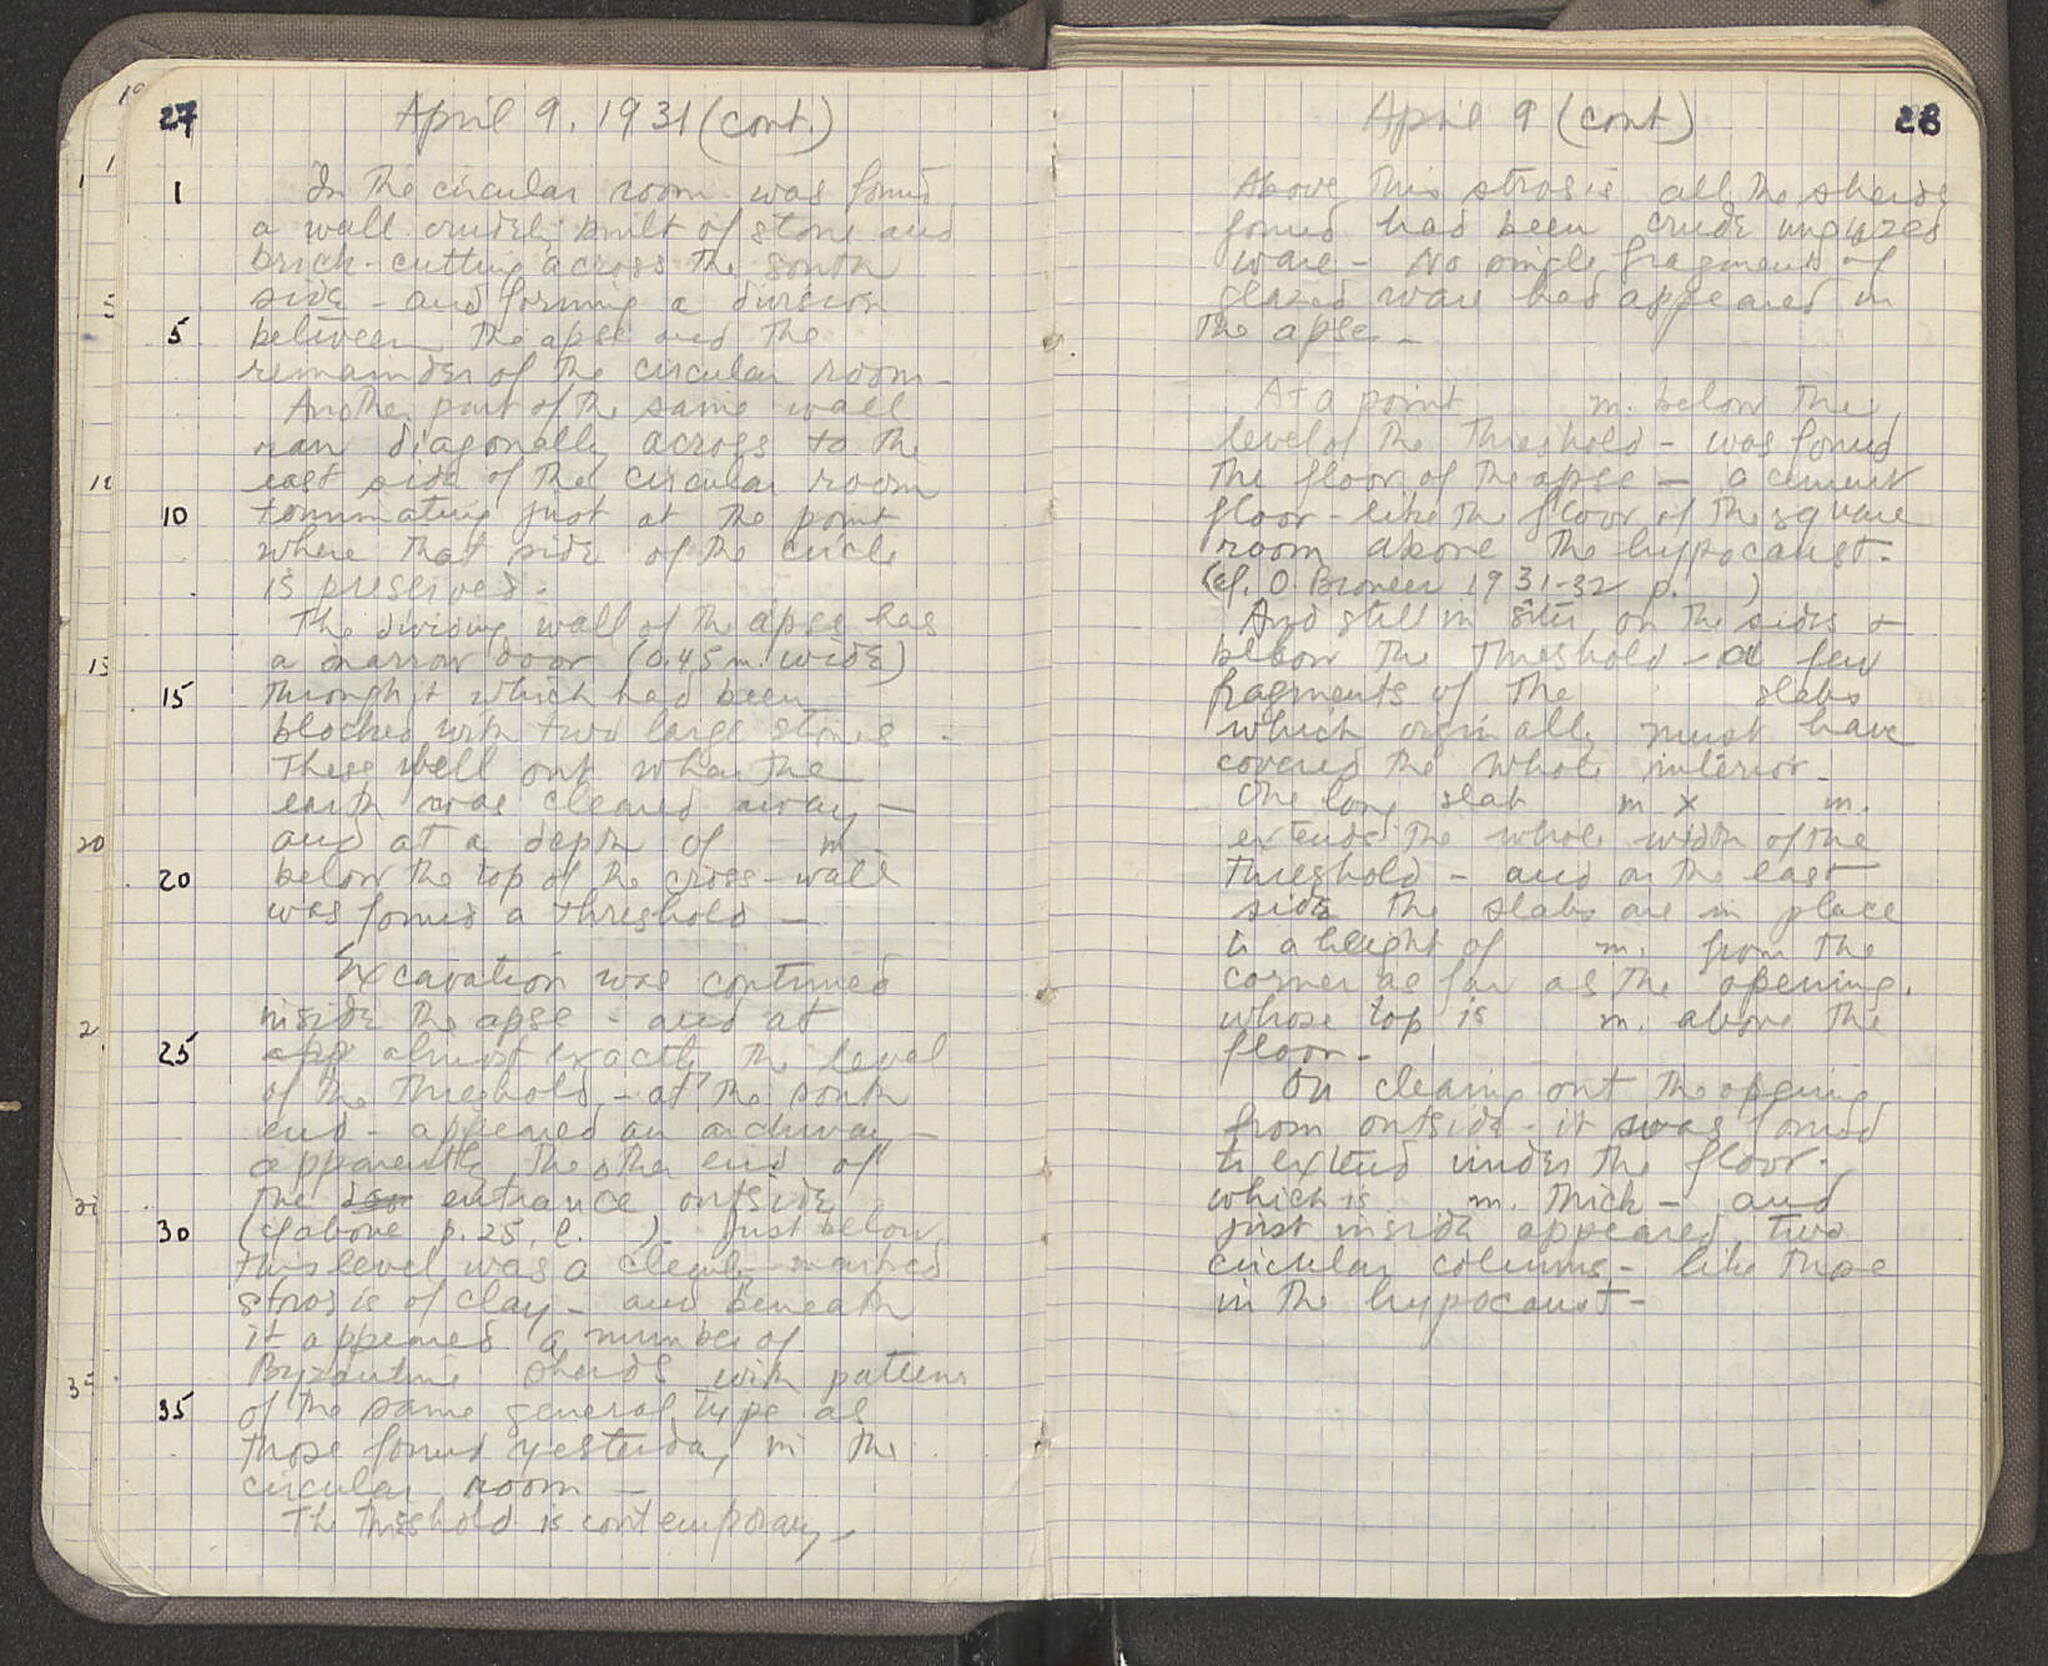 27
April 9. 1931 (cont.)
1 In the circular room was found
a wall crudely built of stone and
brick - cutting across the south
side - and forming a division
5 between the apse and the
remainder of the circular room -
Another part of the same wall
ran diagonally across to the
east side of the circular room
10 terminating just at the point
where that side of the circle
is preserved -
The dividing wall of the apse has
a narrow door (0.45 m. wide)
15 through it which had been
blocked with two large stones -
These fell out when the
earth was cleared away -
and at a depth of - m.
20 below the top of the cross-wall
was found a threshold -
Excavation was continued
inside the apse - and at
25 app almost exactly the level
of the threshold, - at the south
end - appeared an archway -
apparently the other end of
the entrance outside
30 (cf above p. 25, l. ). Just below
this level was a clearly-marked
strosis of clay - and beneath
it appeared a number of
Byzantine sherds with patterns
35 of the same general type as
those found yesterday in the
circular room -
The threshold is contemporary -
April 9 (cont)
28
Above this strosis all the sherds
found had been crude unglazed
ware - No single fragment of
glazed ware had appeared in
the apse -
At a point m. below the
level of the threshold - was found
the floor of the apse - a cement
floor - like the floor of the square
room above the hypocaust -
(cf. O. Broneer 1931-32 p. )
And still in situ, on the sides +
below the threshold - a few
fragments of the slabs
which originally must have
covered the whole interior -
One long slab m x m.
extends the whole width of the
threshold - and on the east
side the slabs are in place
to a height of m. from the
corner as far as the opening,
whose top is m. above the
floor -
On clearing out the opening
from outside - it was found
to extend under the floor -
which is m. thick - and
just inside appeared two
circular columns - like those
in the hypocaust -